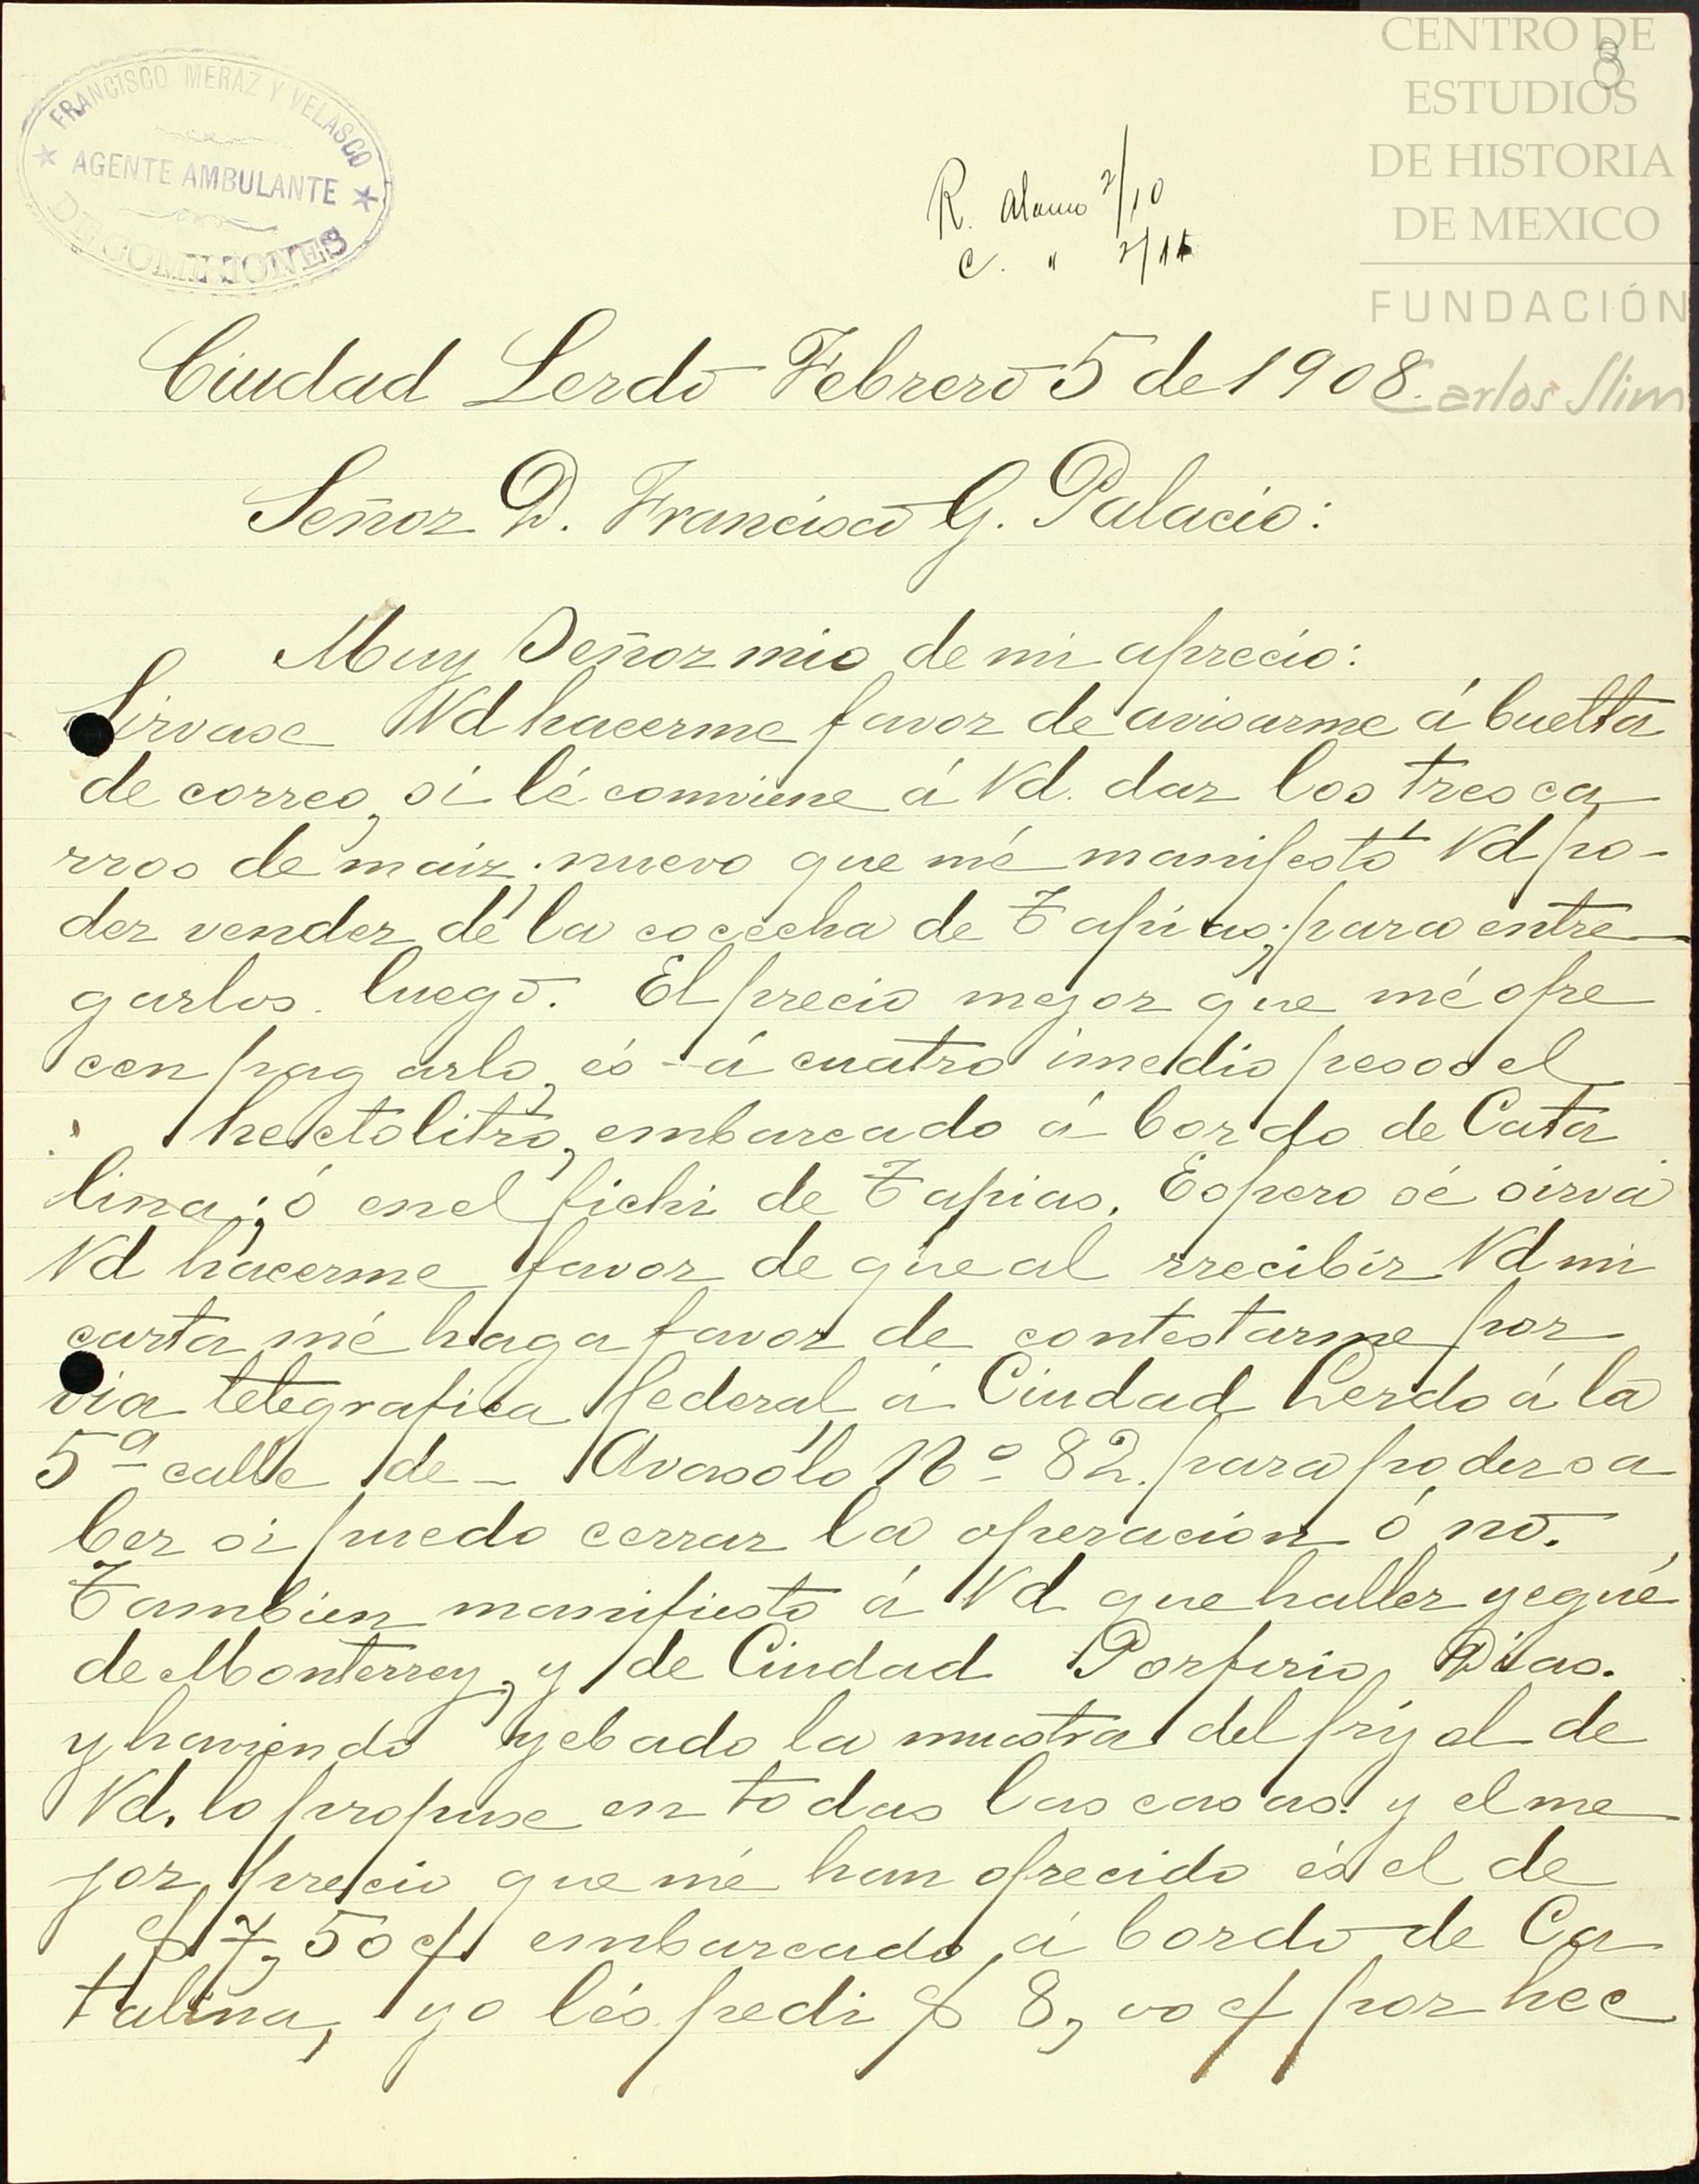 FRANCISCO MERAZ Y VELASCO
AGENTE AMBULANTE
DE COMISIONES
CENTRO DE
ESTUDIOS
DE HISTORIA
DE MEXICO
FUNDACIÓN
Carlos Slim
8
R. Alamo 2/10
C. " 2/11
Ciudad Lerdo Febrero 5 de 1908.
Señor D. Francisco G. Palacio:
Muy Señor mio de mi aprecio:
Sirvase Vd hacerme favor de avisarme á buelta
de correo, si lé comviene á Vd. dar los tres ca
rros de maiz, nuevo que mé manifestó Vd po-
der vender dé la cocecha de Tapias; para entre
garlos luego. El precio mejor que mé ofre
cen pagarlo, és á cuatro imedio pesos el
hectolitro, embarcado á bordo de Cata
lina; ó en el fichi de Tapias. Espero sé sirva
Vd hacerme favor de que al rrecibir Vd mi
carta mé haga favor de contestarme por
via telegrafica federal á Ciudad Lerdo á la
5ª calle de Avasólo Nº 82. para poder sa
ber si puedo cerrar la operacion ó no.
Tambien manifiesto á Vd que haller yegué
de Monterrey, y de Ciudad Porfirio Dias.
y haviendo yebado la muestra del frijol de
Vd. lo propuse en todas las casas: y el me
jor precio que mé han ofrecido és el de
$ 7,50 ¢ embarcado á bordo de Ca
talina, yo lés pedi $ 8,00 ¢ por hec